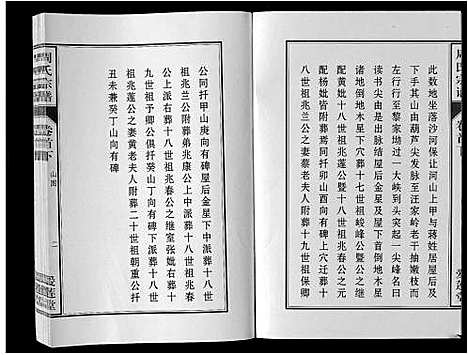 周氏宗谱
卷首下
此数地坐落沙河保让河山上甲与蒋姓居屋后及
下手其山由葫芦尖发下至汪家岭老干抽嫩枝
左右行行至黎家坳过一大峡到头突起一尖峰名曰
首德尖山由尖峰出脉行至结咽处起一金星名曰
旺地水木星下穴葬十七世祖峻峰公暨十八世祖兆
配杨妣皆葬与此迁葬十八世祖兆春公之元
配方氏妣十八世祖兆莲公暨十八世祖兆康公附葬十
八世祖兆兰公之妻蔡老夫人附葬十九世祖保卿
公同扦甲山庚向有碑屋后金星下中派葬十八世
祖兆兰公附葬弟兆康公上派中葬十八世祖兆春
公上派右葬十八世祖兆春公之继室张妣右葬十
九世祖子卿公俱扦癸山丁向有碑下派葬十八世
祖兆莲公之妻黄老夫人附葬二十世祖朝重公扦
丑未兼癸丁山向有碑
周氏宗谱
卷首下
山图
二
爱莲堂